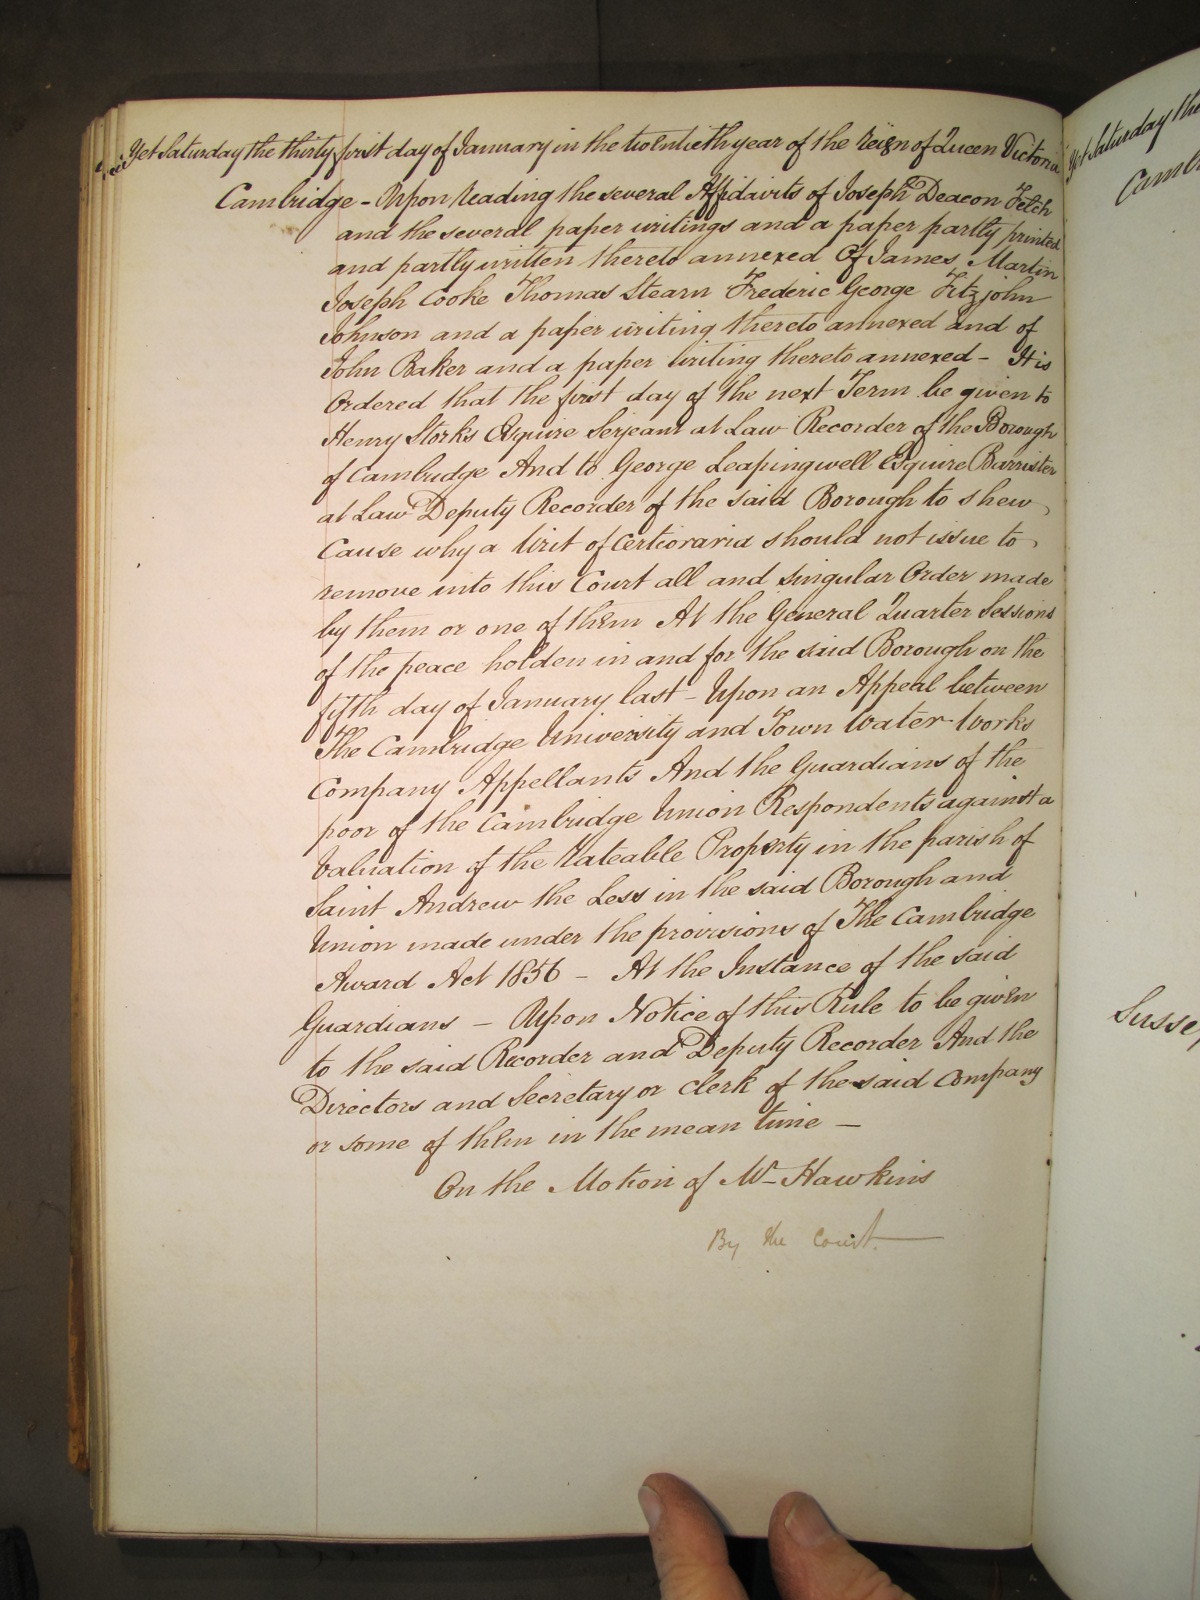 Yet Saturday the thirty first day of January in the twentieth year of the reign of Queen Victoria
Cambridge - Upon reading the several Affidavits of Joseph Deacon Fetch
and the several paper writings and a paper partly printed
and partly written thereto annexed Of James Martin
Joseph Cooke Thomas Stearn Frederic George Fitzjohn
Johnson and a paper writing thereto annexed and of
John Baker and a paper writing thereto annexed - It is
Ordered that the first day of the next Term be given to
Henry Storks Esquire Serjeant at Law Recorder of the Borough
of Cambridge And to George Leapingwell Esquire Barrister
at Law Deputy Recorder of the said Borough to shew
Cause why a Writ of Certioraria should not issue to
remove into this Court all and singular Order made
by them or one of them At the General Quarter Sessions
of the peace holden in and for the said Borough on the
fifth day of January last - Upon an Appeal between
The Cambridge University and Town Water-Works
Company Appellants And the Guardians of the
poor of the Cambridge Union Respondents against a
Valuation of the Rateable Property in the parish of
Saint Andrew the Less in the said Borough and
Union made under the provisions of The Cambridge
Award Act 1856 - At the Instance of the said
Guardians - Upon Notice of this Rule to be given
to the said Recorder and Deputy Recorder And the
Directors and Secretary or Clerk of the said Company
or some of them in the mean time -
On the Motion of Mr Hawkins
By the Court.
Yet Saturday the